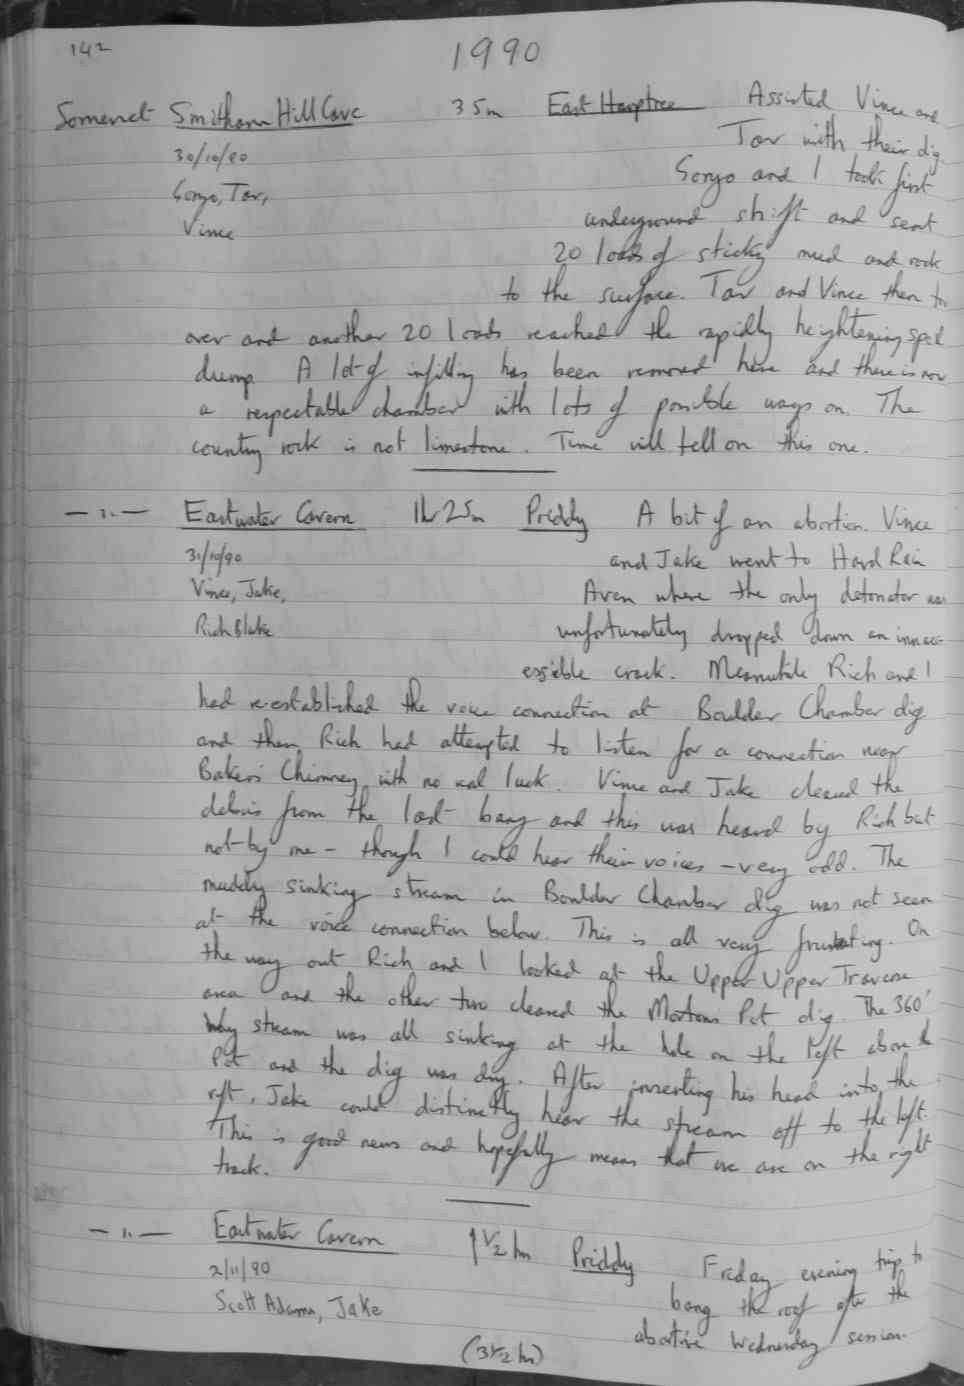 142
1990
Somerset Smitham Hill Cave 35m East Harptree Assisted Vince and
30/10/90 Tav with their dig.
Gonzo, Tav, Gonzo and I took first
Vince underground shift and sent
20 loads of sticky mud and rock
to the surface. Tav and Vince then took
over and another 20 loads reached the rapidly heightening spoil
dump. A lot of infilling has been removed here and there is now
a respectable chamber with lots of possible ways on. The
country rock is not limestone. Time will tell on this one.
— " — Eastwater Cavern 1hr25m Priddy A bit of an abortion. Vince
31/10/90 and Jake went to Hard Rain
Vince, Jake, Aven where the only detonator was
Rich Blake unfortunately dropped down an inacc-
essible crack. Meanwhile Rich and I
had re-established the voice connection at Boulder Chamber dig
and then Rich had attempted to listen for a connection near
Bakers' Chimney with no real luck. Vince and Jake cleared the
debris from the last bang and this was heard by Rich but
not by me - though I could hear their voices - very odd. The
muddy sinking stream in Boulder Chamber dig was not seen
at the voice connection below. This is all very frustrating. On
the way out Rich and I looked at the Upper Upper Traverse
area and the other two cleared the Mortons Pot dig. The 360'
Way stream was all sinking at the hole on the left above the
Pot and the dig was dry. After inserting his head into the
rift, Jake could distinctly hear the stream off to the left.
This is good news and hopefully means that we are on the right
track.
— " — Eastwater Cavern 1 1/2 hr Priddy Friday evening trip to
2/11/90 bang the roof after the
Scott Adams, Jake abortive Wednesday session.
(3 1/2 hr)